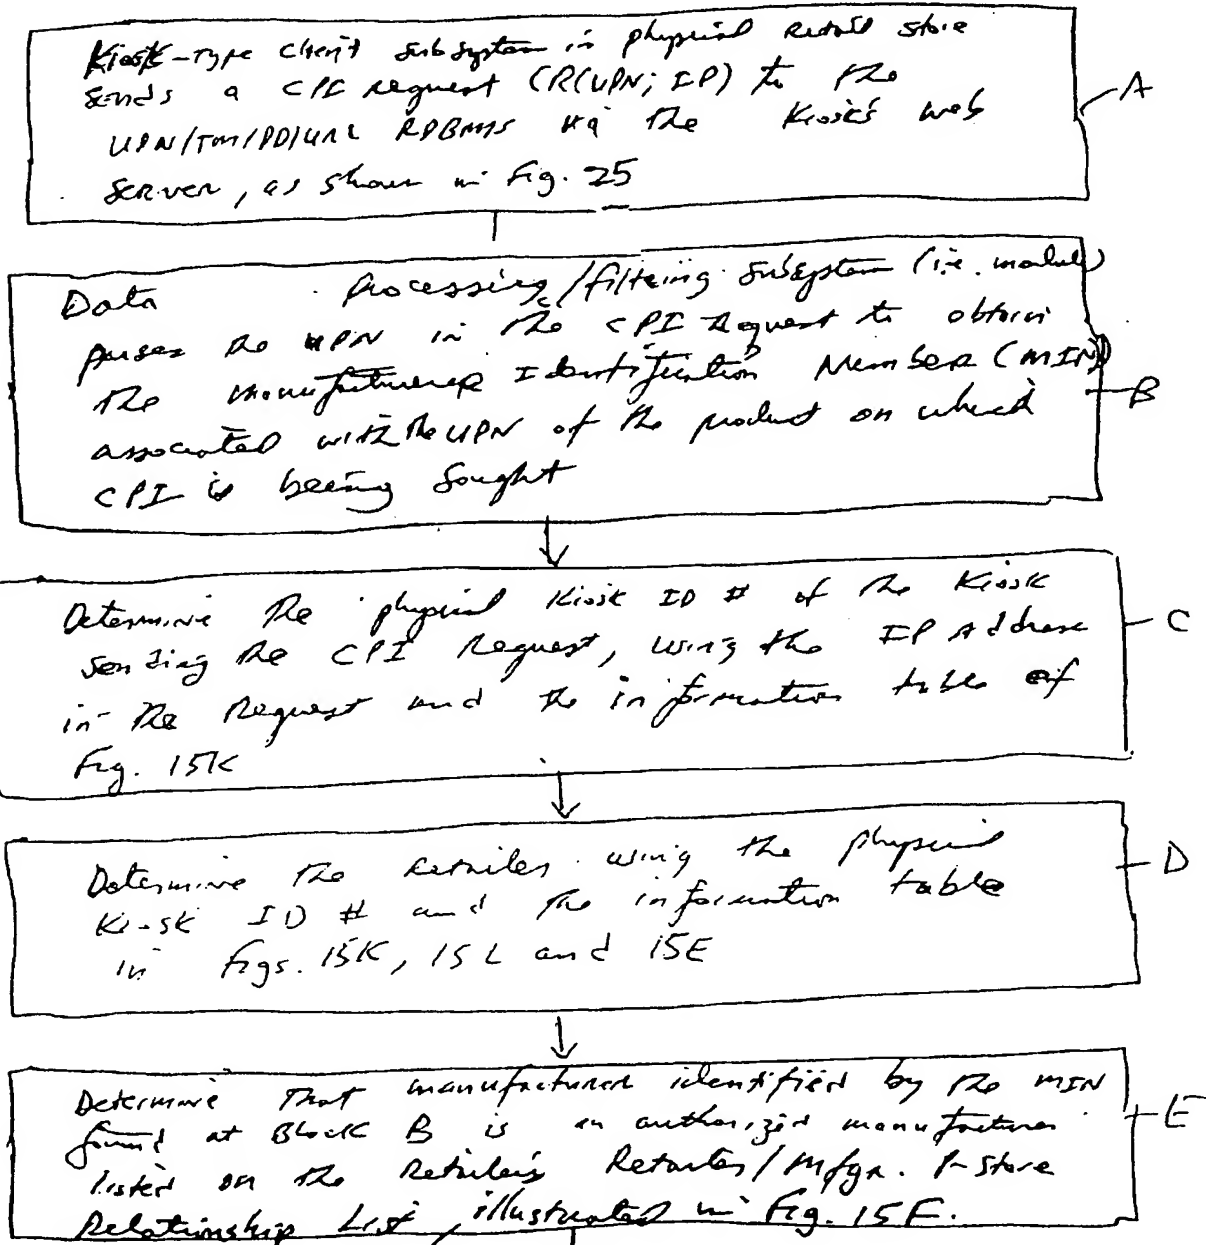 Kiosk-type client subsystem in physical retail store
sends a CPI request (R(UPN; IP) to the
UPN/TM/PD/URL RDBMS via the Kiosk's web
server, as shown in Fig. 25
A
Data processing/filtering subsystem (i.e. module)
parses the UPN in the CPI request to obtain
the manufacturer Identification Number (MIN)
B
associated with the UPN of the product on which
CPI is being sought
Determine the physical Kiosk ID # of the Kiosk
C
sending the CPI Request, using the IP Address
in the Request and the information table of
Fig. 15K
Determine the retailer using the physical
D
Kiosk ID # and the information table
in Figs. 15K, 15L and 15E
Determine that manufacturer identified by the MIN
E
found at Block B is an authorized manufacturer
listed on the Retailer's Retailer/Mfgr. P-Store
Relationship List, illustrated in Fig. 15F.